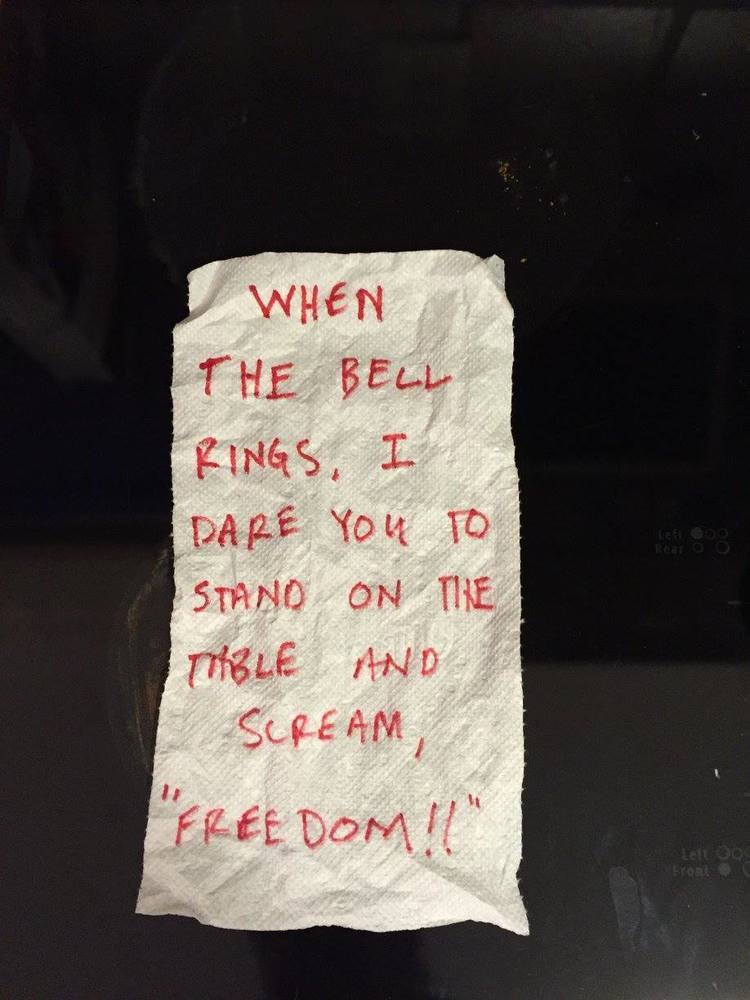 WHEN
THE BELL
RINGS, I
DARE YOU TO
STAND ON THE
TABLE AND
SCREAM,
"FREEDOM!!"
Left
Rear
Left
Front